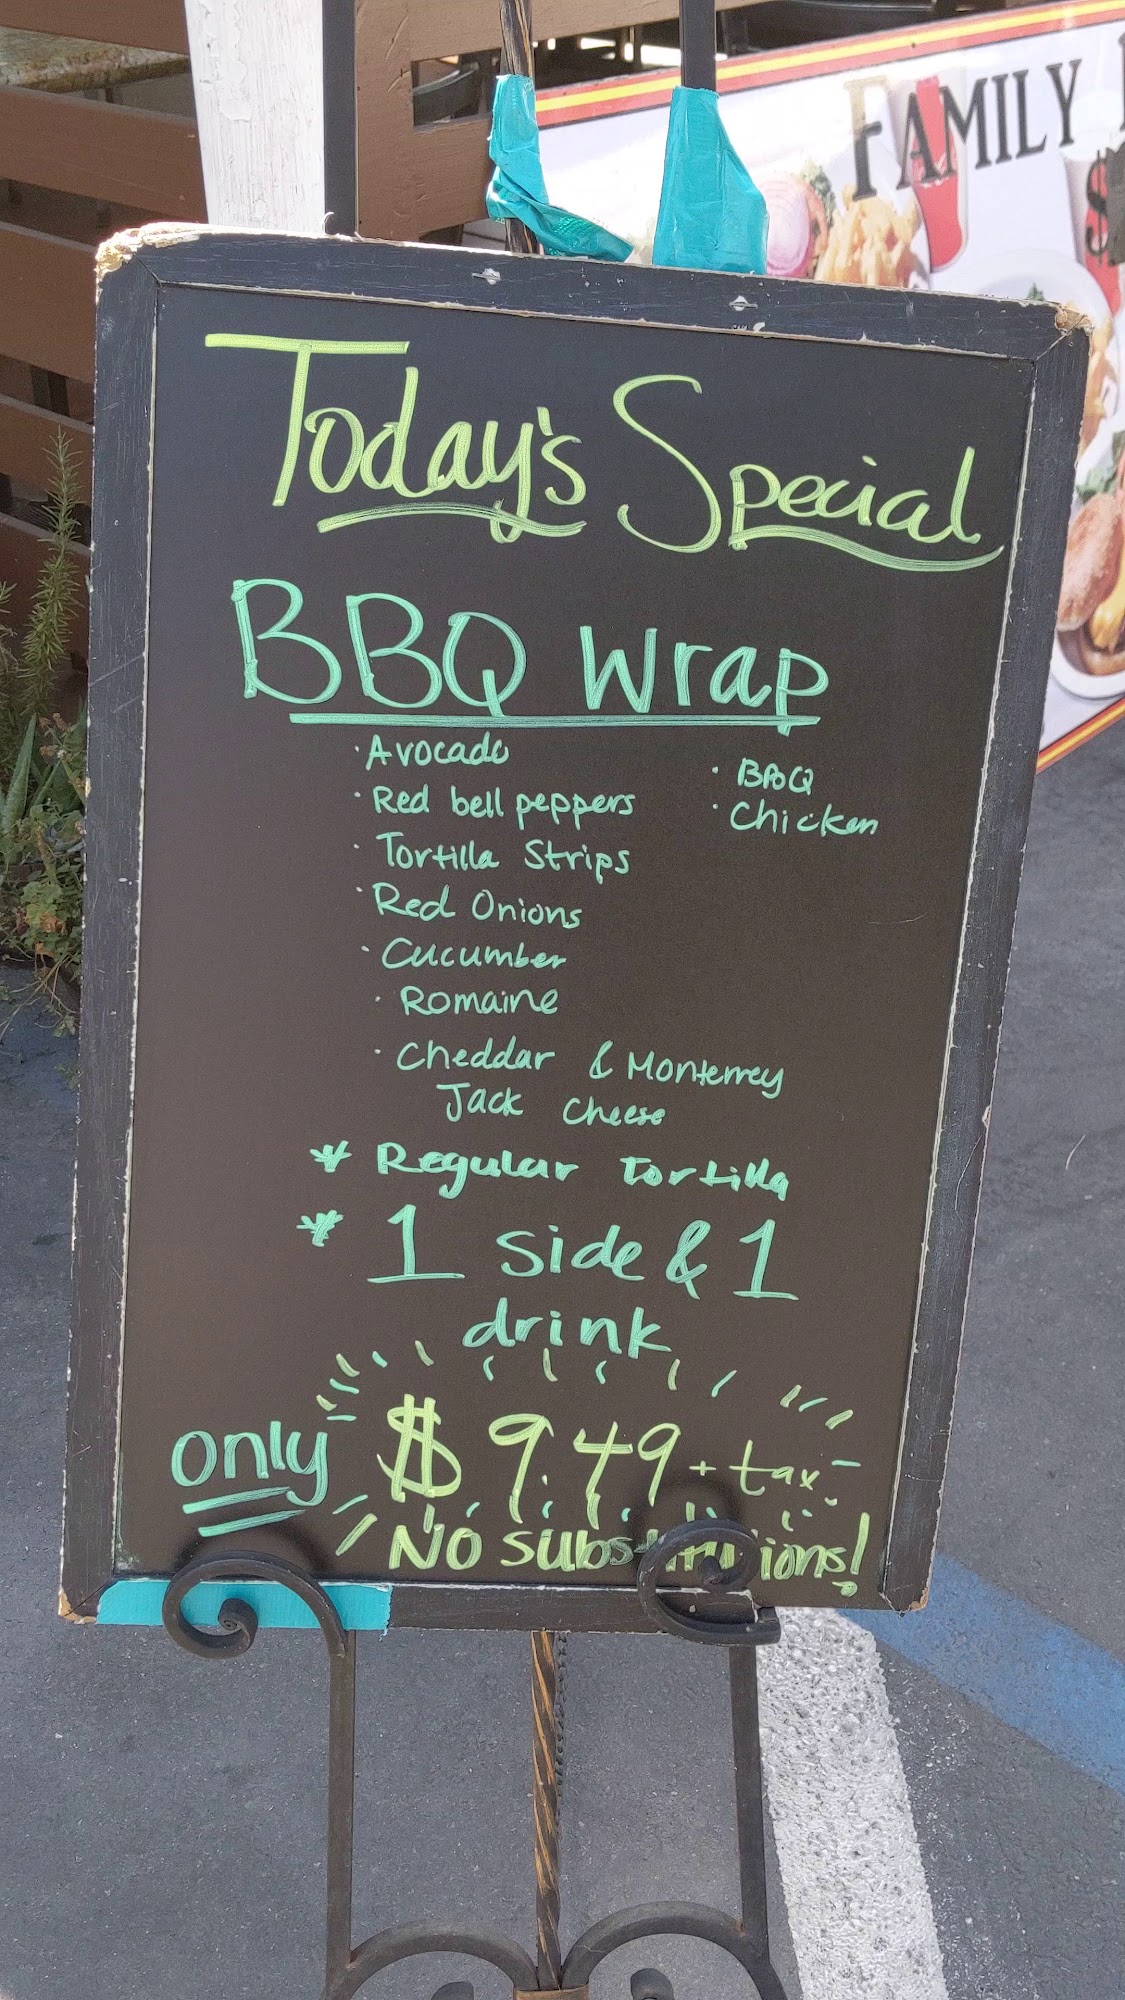 FAMILY
$
Today's Special
BBQ Wrap
· Avocado
· Red bell peppers
· Tortilla Strips
· Red Onions
· Cucumber
· Romaine
· Cheddar & Monterrey
Jack Cheese
· BBQ
· Chicken
* Regular Tortilla
* 1 side & 1
drink
only $9.49 + tax
No substitutions!